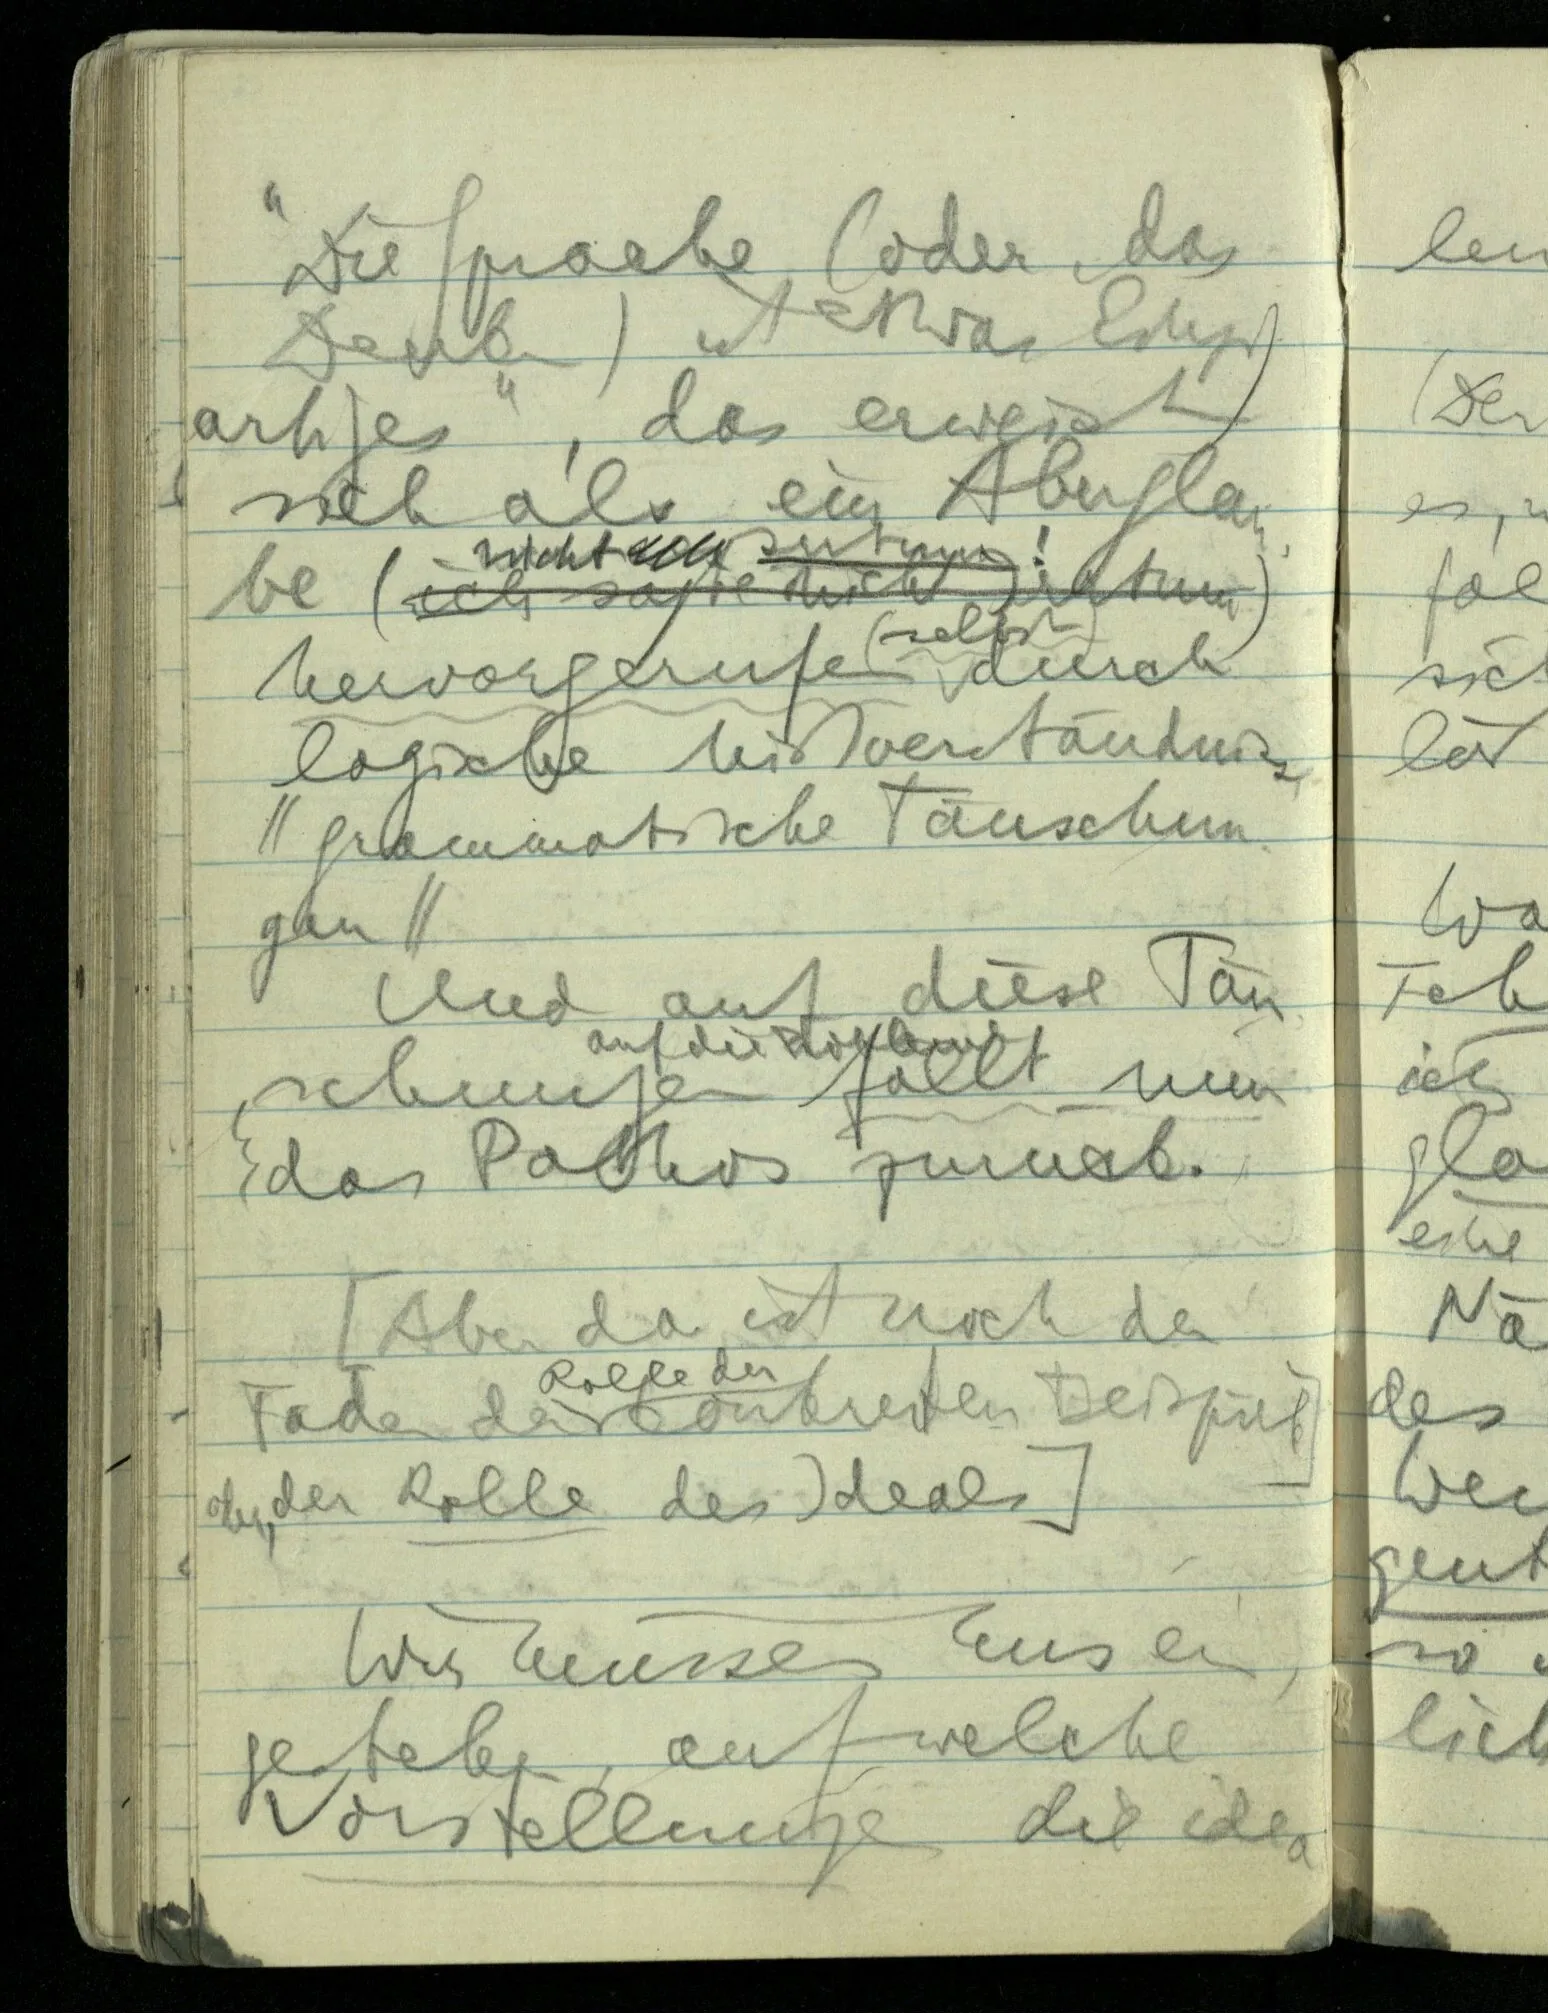 "Die Sprache (oder das
Denken) ist etwas Einzig-
artiges", das erweist
sich als ein Aberglau-
be (nicht Irrtum!)
ich sagte nicht Irrtum
(selbst)
hervorgerufen durch
logische Mißverständnisse
// grammatische Täuschun-
gen //
Und auf diese Täu-
auf die Probleme
schungen fällt nun
das Pathos zurück.
[Aber da ist noch der
Rolle der
Faden der konkreten Beispiele]
oder, der Rolle des Ideals]
Wir müssen uns ein-
gestehen, auf welche
Vorstellungen die idea
len
(Der
es,
sich
ich
eine
des
so
lich